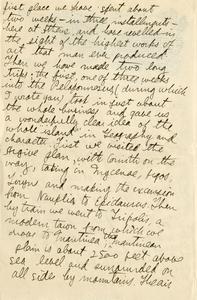 first place we have spent about
two weeks - in three installments -
here at Athens, and have revelled in
the sight of the highest works of
art that man ever produced.
Then we have made two long
trips; the first, one of three weeks
into the Peloponnesus (during which
I wrote you), took in just about
the whole business and gave us
a wonderfully clear idea of the
whole island in geography and
character. First we visited the
Argive plain, with Corinth on the
way, taking in Mycenae, Argos,
Tiryns and making the excursion
from Nauplia to Epidauros. Then
by train we went to Tripolis, a
modern town from which we
drove to Mantinea. The Mantinean
plain is about 2500 feet above
sea level and surrounded on
all sides by mountains.